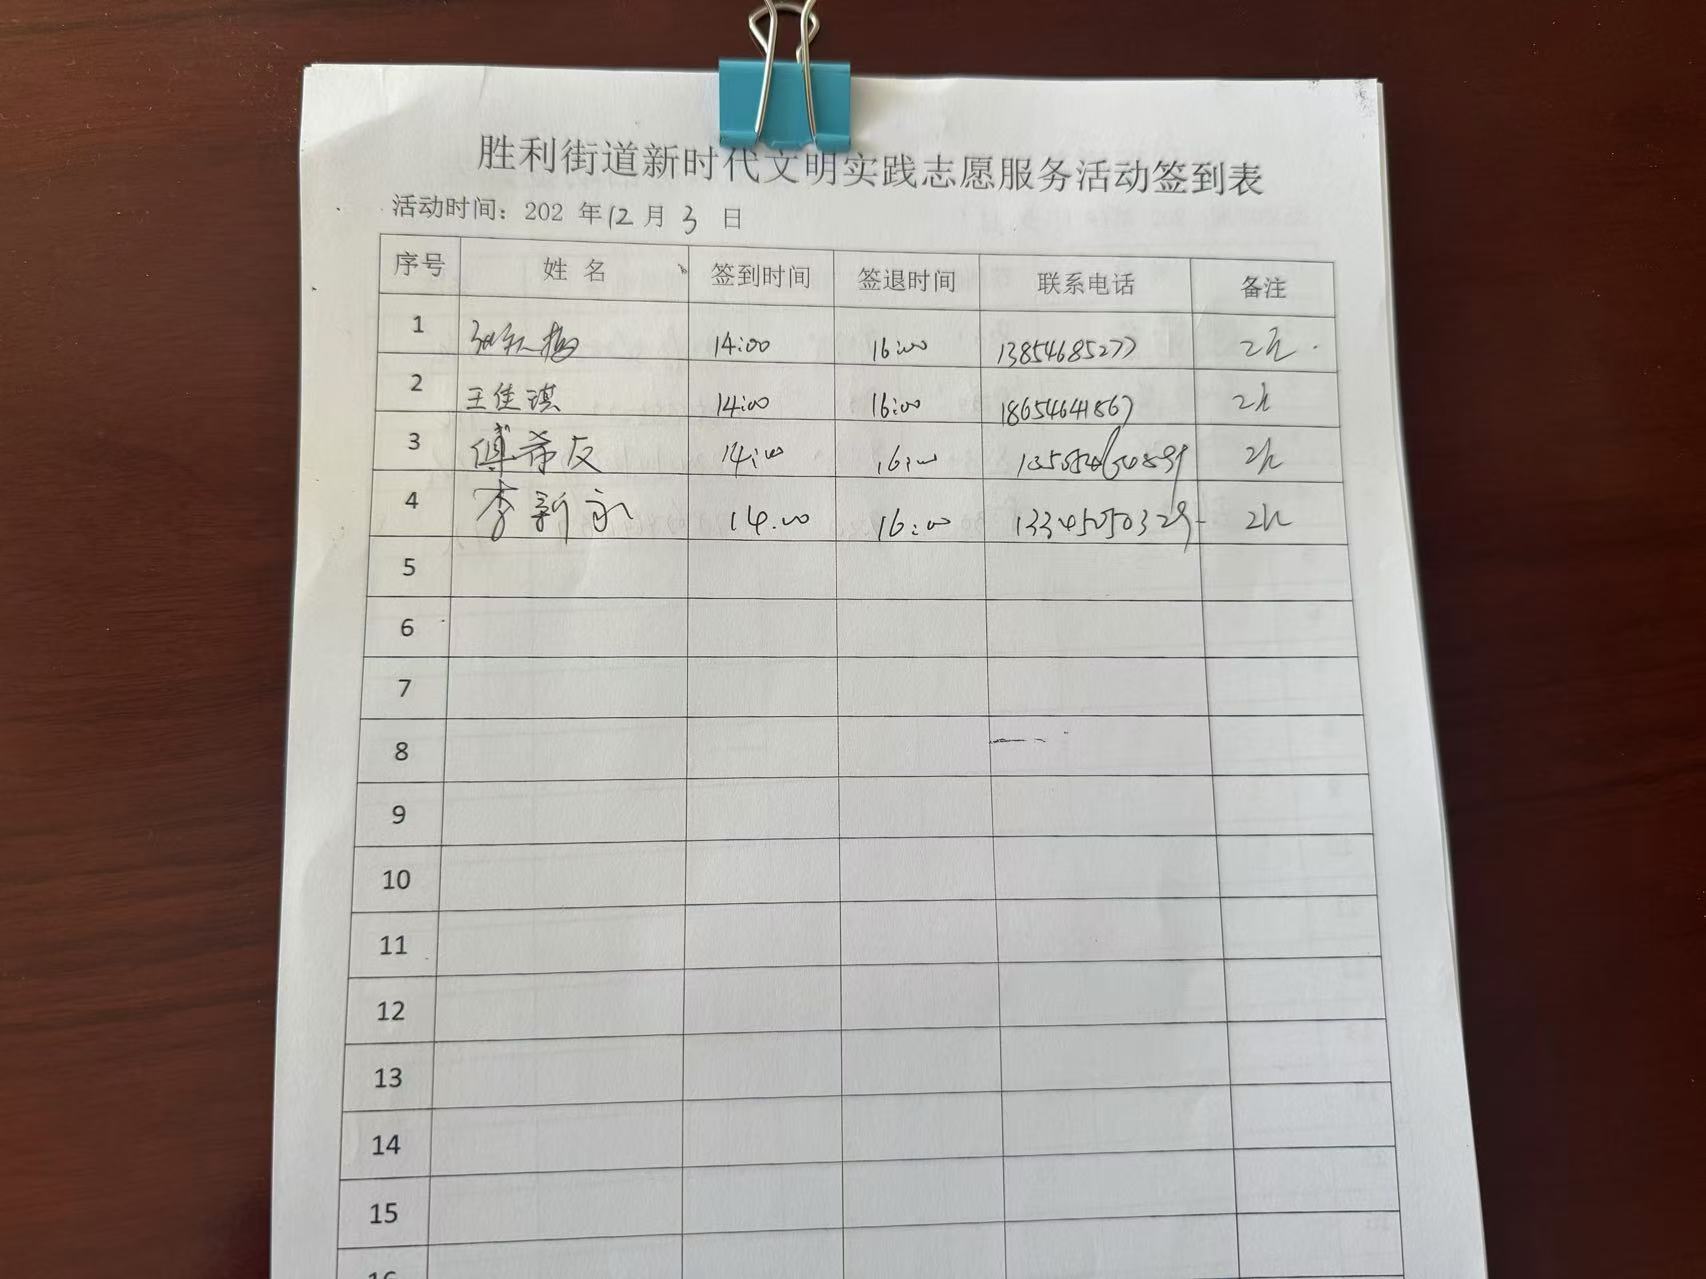 胜利街道新时代文明实践志愿服务活动签到表
活动时间：202 年12月3日
序号 姓名 签到时间 签退时间 联系电话 备注
1 14:00 16:00 13854685277 2h
2 王佳琪 14:00 16:00 18654641867 2h
3 傅希友 14:00 16:00 2h
4 李新永 14:00 16:00 13345050329 2h
5
6
7
8
9
10
11
12
13
14
15
16